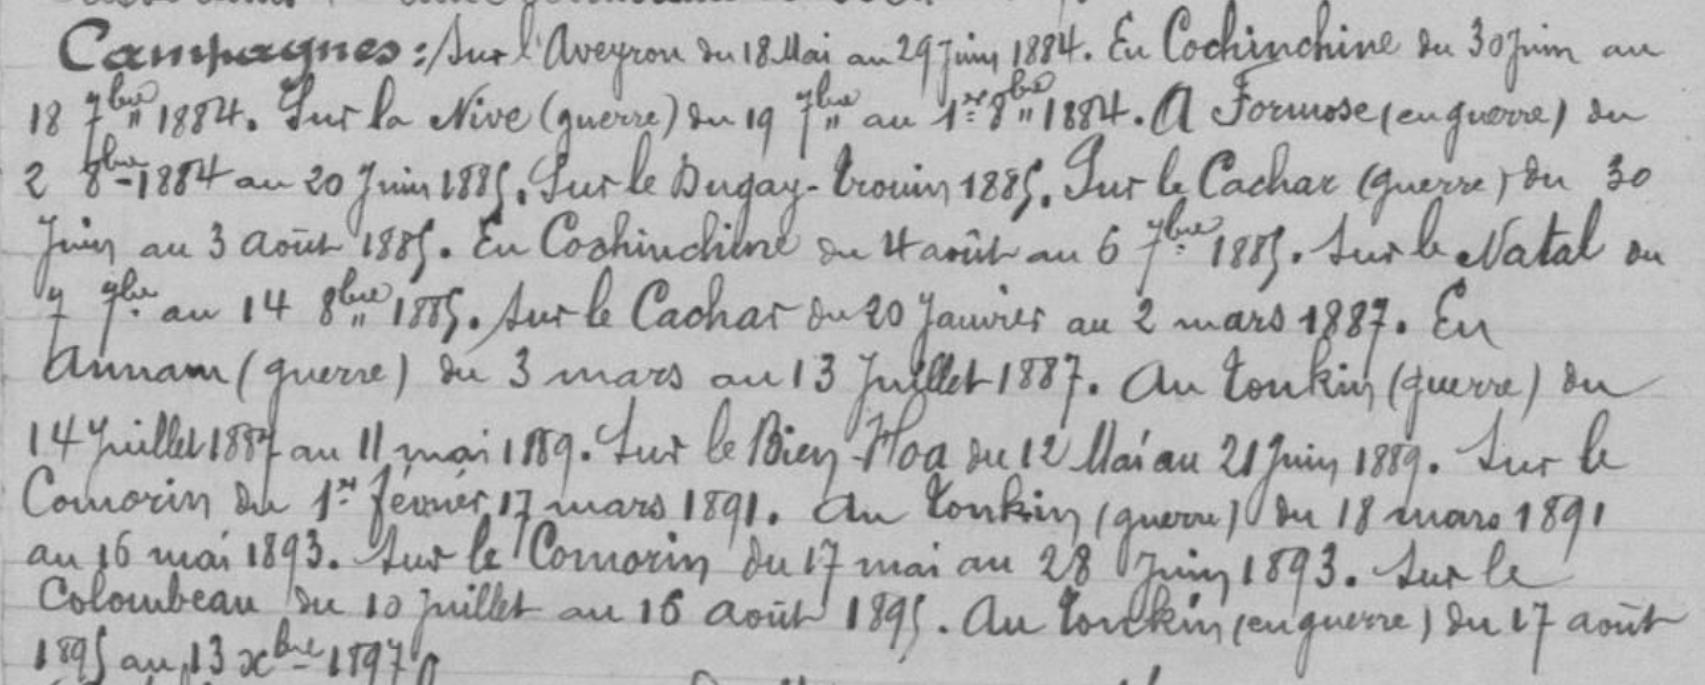 Campagnes : Sur l'Aveyron du 18 Mai au 29 Juin 1884. En Cochinchine du 30 Juin au
18 7bre 1884. Sur la Nive (guerre) du 19 7bre au 1er 8bre 1884. A Formose (en guerre) du
2 8bre 1884 au 20 Juin 1885. Sur le Dugay-trouin 1885. Sur le Cachar (guerre) du 30
Juin au 3 août 1885. En Cochinchine du 4 août au 6 7bre 1885. Sur le Natal du
7 7bre au 14 8bre 1885. Sur le Cachar du 20 Janvier au 2 mars 1887. En
Annam (guerre) du 3 mars au 13 Juillet 1887. Au tonkin (guerre) du
14 Juillet 1887 au 11 mai 1889. Sur le Bien-Hoa du 12 Mai au 21 Juin 1889. Sur le
Comorin du 1er février 17 mars 1891. Au tonkin (guerre) du 18 mars 1891
au 16 mai 1893. Sur le Comorin du 17 mai au 28 Juin 1893. Sur le
Colombeau du 10 juillet au 16 août 1895. Au tonkin (en guerre) du 17 août
1895 au 13 xbre 1897